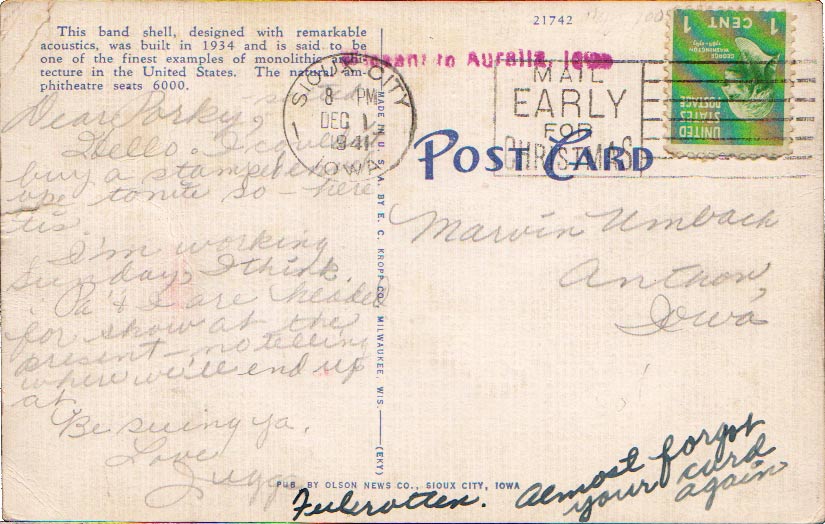 This band shell, designed with remarkable
acoustics, was built in 1934 and is said to be
one of the finest examples of monolithic archi-
tecture in the United States. The natural am-
phitheatre seats 6000.
21742
Missent to Aurelia, Iowa
SIOUX CITY
8 PM
DEC 1
1941
IOWA
MAIL
EARLY
FOR
CHRISTMAS
1 CENT 1
GEORGE
WASHINGTON
UNITED
STATES
POSTAGE
POST CARD
Dear Porky,
Hello. I couldn't
buy a stamped
ope tonite so - here
tis.
I'm working
Sunday, I think.
Pa & I are headed
for show at the
present, no telling
where we'll end up
at.
Be seeing ya.
Love
Marvin Umbach
Anthon,
Iowa
MADE IN U. S. A. BY E. C. KROPP CO., MILWAUKEE, WIS. (EKY)
PUB. BY OLSON NEWS CO., SIOUX CITY, IOWA
Feelrotten. Almost forgot
your card
again